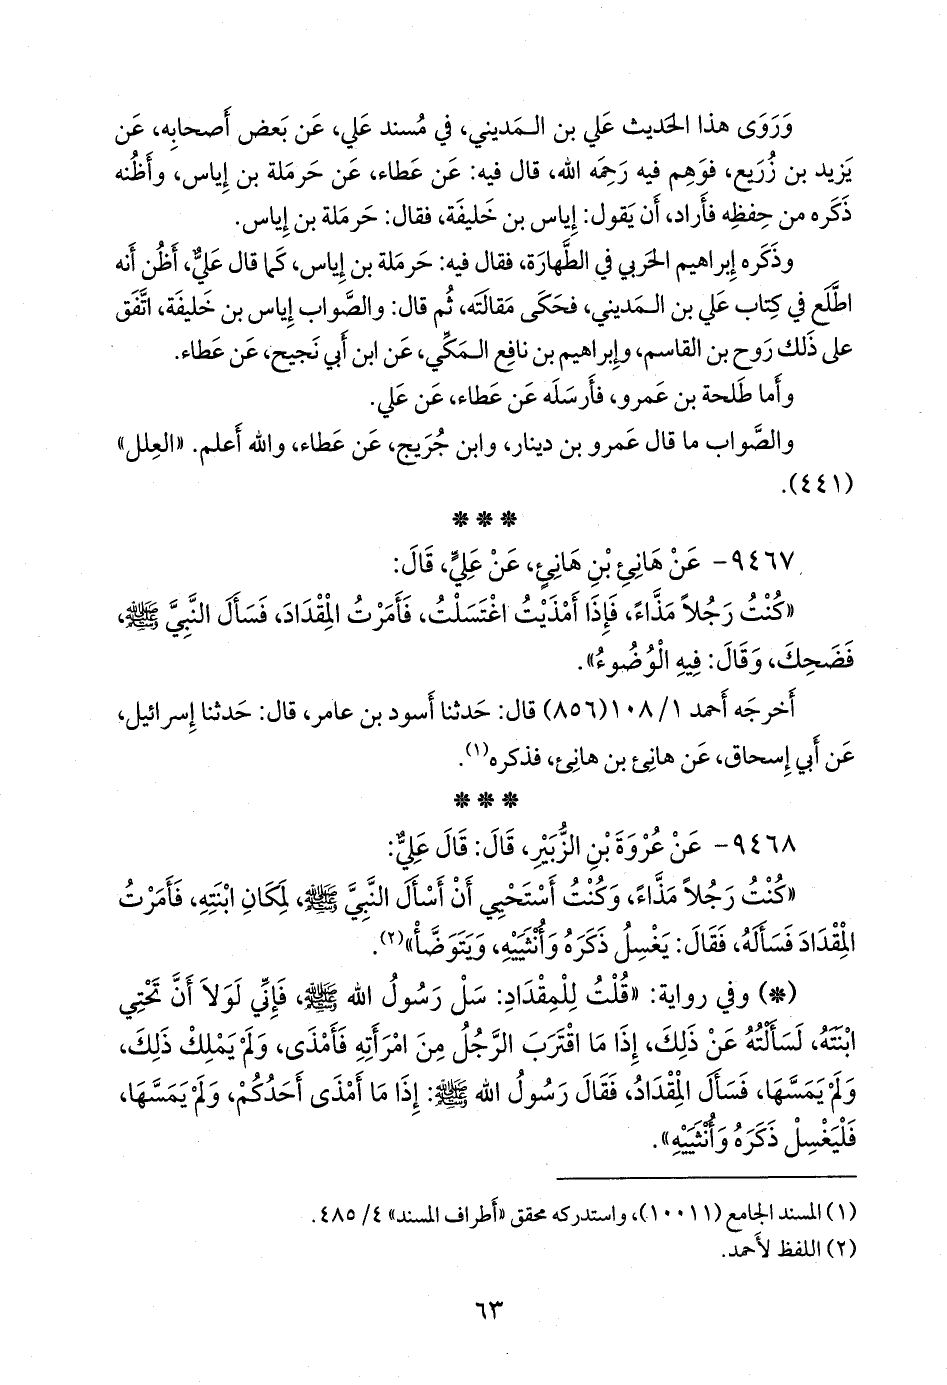 وَرَوَى هذا الحَديث عَلي بن الـمَديني، في مُسند عَلي، عَن بَعض أَصحابِه، عَن
يَزيد بن زُرَيع، فوَهِم فيه رَحِمَه الله، قال فيه: عَن عَطاء، عَن حَرملة بن إِياس، وأَظُنه
ذَكَره من حِفظِه فأَراد، أَن يَقول: إِياس بن خَليفَة، فقال: حَرملة بن إِياس.
وذَكَره إِبراهيم الحَربي في الطَّهارَة، فقال فيه: حَرملة بن إِياس، كَما قال عَليٌّ، أَظُن أَنه
اطَّلَع في كِتاب عَلي بن الـمَديني، فحَكَى مَقالَتَه، ثُم قال: والصَّواب إِياس بن خَليفَة، اتَّفَق
على ذَلك رَوح بن القاسم، وإِبراهيم بن نافِع الـمَكِّي، عَن ابن أَبي نَجيح، عَن عَطاء.
وأَما طَلحة بن عَمرو، فأَرسَلَه عَن عَطاء، عَن عَلي.
والصَّواب ما قال عَمرو بن دينار، وابن جُرَيج، عَن عَطاء، والله أَعلم. «العِلل»
(٤٤١).
* * *
٩٤٦٧- عَنْ هَانِئِ بْنِ هَانِئٍ، عَنْ عَلِيٍّ، قَالَ:
«كُنْتُ رَجُلاً مَذَّاءً، فَإِذَا أَمْذَيْتُ اغْتَسَلْتُ، فَأَمَرْتُ الْمِقْدَادَ، فَسَأَلَ النَّبِيَّ ﷺ،
فَضَحِكَ، وَقَالَ: فِيهِ الْوُضُوءُ».
أَخرجَه أَحمد ١/ ١٠٨(٨٥٦) قال: حَدثنا أَسود بن عامر، قال: حَدثنا إِسرائيل،
عَن أَبي إِسحاق، عَن هانِئ بن هانِئ، فذكره(١).
* * *
٩٤٦٨- عَنْ عُرْوَةَ بْنِ الزُّبَيْرِ، قَالَ: قَالَ عَلِيٌّ:
«كُنْتُ رَجُلاً مَذَّاءً، وَكُنْتُ أَسْتَحْيِي أَنْ أَسْأَلَ النَّبِيَّ ﷺ، لِمَكَانِ ابْنَتِهِ، فَأَمَرْتُ
الْمِقْدَادَ فَسَأَلَهُ، فَقَالَ: يَغْسِلُ ذَكَرَهُ وَأُنْثَيَيْهِ، وَيَتَوَضَّأُ»(٢).
(*) وفي رواية: «قُلْتُ لِلْمِقْدَادِ: سَلْ رَسُولُ الله ﷺ، فَإِنِّي لَوْلاَ أَنَّ تَحْتِي
ابْنَتَهُ، لَسَأَلْتُهُ عَنْ ذَلِكَ، إِذَا مَا اقْتَرَبَ الرَّجُلُ مِنَ امْرَأَتِهِ فَأَمْذَى، وَلَمْ يَمْلِكْ ذَلِكَ،
وَلَمْ يَمَسَّهَا، فَسَأَلَ الْمِقْدَادُ، فَقَالَ رَسُولُ الله ﷺ: إِذَا مَا أَمْذَى أَحَدُكُمْ، وَلَمْ يَمَسَّهَا،
فَلْيَغْسِلْ ذَكَرَهُ وَأُنْثَيَيْهِ».
(١) المسند الجامع (١٠٠١١)، واستدركه محقق «أطراف المسند» ٤/ ٤٨٥.
(٢) اللفظ لأَحمد.
٦٣